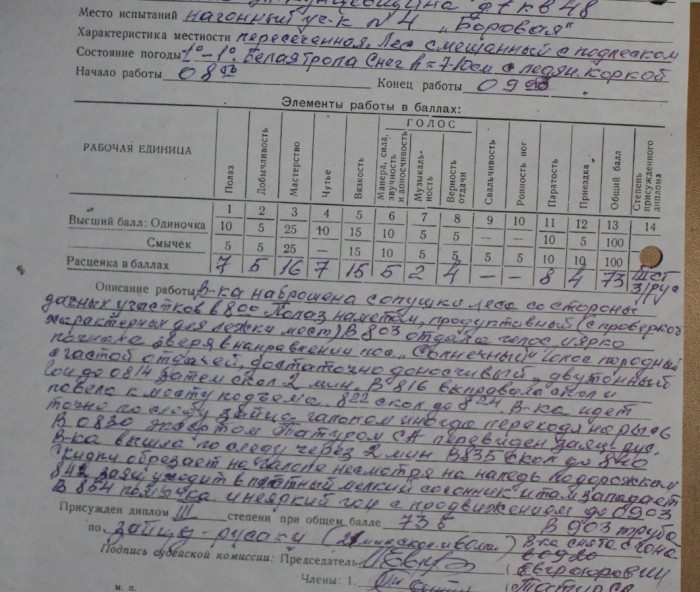 Место испытаний нагонный уч-к №4 „Боровая"
Характеристика местности пересеченная. Лес смешанный с подлеском
Состояние погоды 1°-1°. Белая тропа Снег h=7-10см с ледян. коркой
Начало работы 08⁰⁰ Конец работы 09²⁰
Элементы работы в баллах:
РАБОЧАЯ ЕДИНИЦА Полаз Добычливость Мастерство Чутье Вязкость ГОЛОС Манера, сила, звучность и доносчивость Музыкальность Верность отдачи Свальчивость Ровность ног Паратость Приездка Общий балл Степень присужденного диплома
1 2 3 4 5 6 7 8 9 10 11 12 13 14
Высший балл: Одиночка 10 5 25 10 15 10 5 5 — — 10 5 100
Смычек 5 5 25 — 15 10 5 5 5 5 10 10 100
Расценка в баллах 7 5 16 7 15 5 2 4 — — 8 4 73 III ст З/рус
Описание работы В-ка наброшена с опушки леса со стороны
дачных участков в 8⁰⁰. Полаз наметом, продуктивный (с проверкой
характерных для лежки мест) В 8⁰³ отдала голос и ярко
погнала зверя в направлении пос. „Солнечный" Голос породный
с частой отдачей, достаточно доносчивый, двутонный
Гон до 08¹⁴ затем скол 2 мин. В 8¹⁶ выправила скол и
повела к месту подъема. 8²² скол до 8²⁴ В-ка идет
точно по следу зайца галопом иногда переходя на рысь
В 08³⁰ экспертом Татуром СА перевиден заяц рус.
В-ка вышла по следу через 2 мин В 8³⁵ скол до 8⁴⁰
Скидку обрезает на галопе несмотря на наледь По дорожкам
8⁴² заяц уходит в плотный мелкий сосонник и там западает
В 8⁵⁴ помычка и неяркий гон с продвижением до 09⁰³
Присужден диплом III степени при общем балле 73 б В 9⁰³ труба
по зайцу-русаку В-ка снята с гона
Подпись судейской комиссии: Председатель 09²⁰
Члены: 1. Татур СА
м. п.